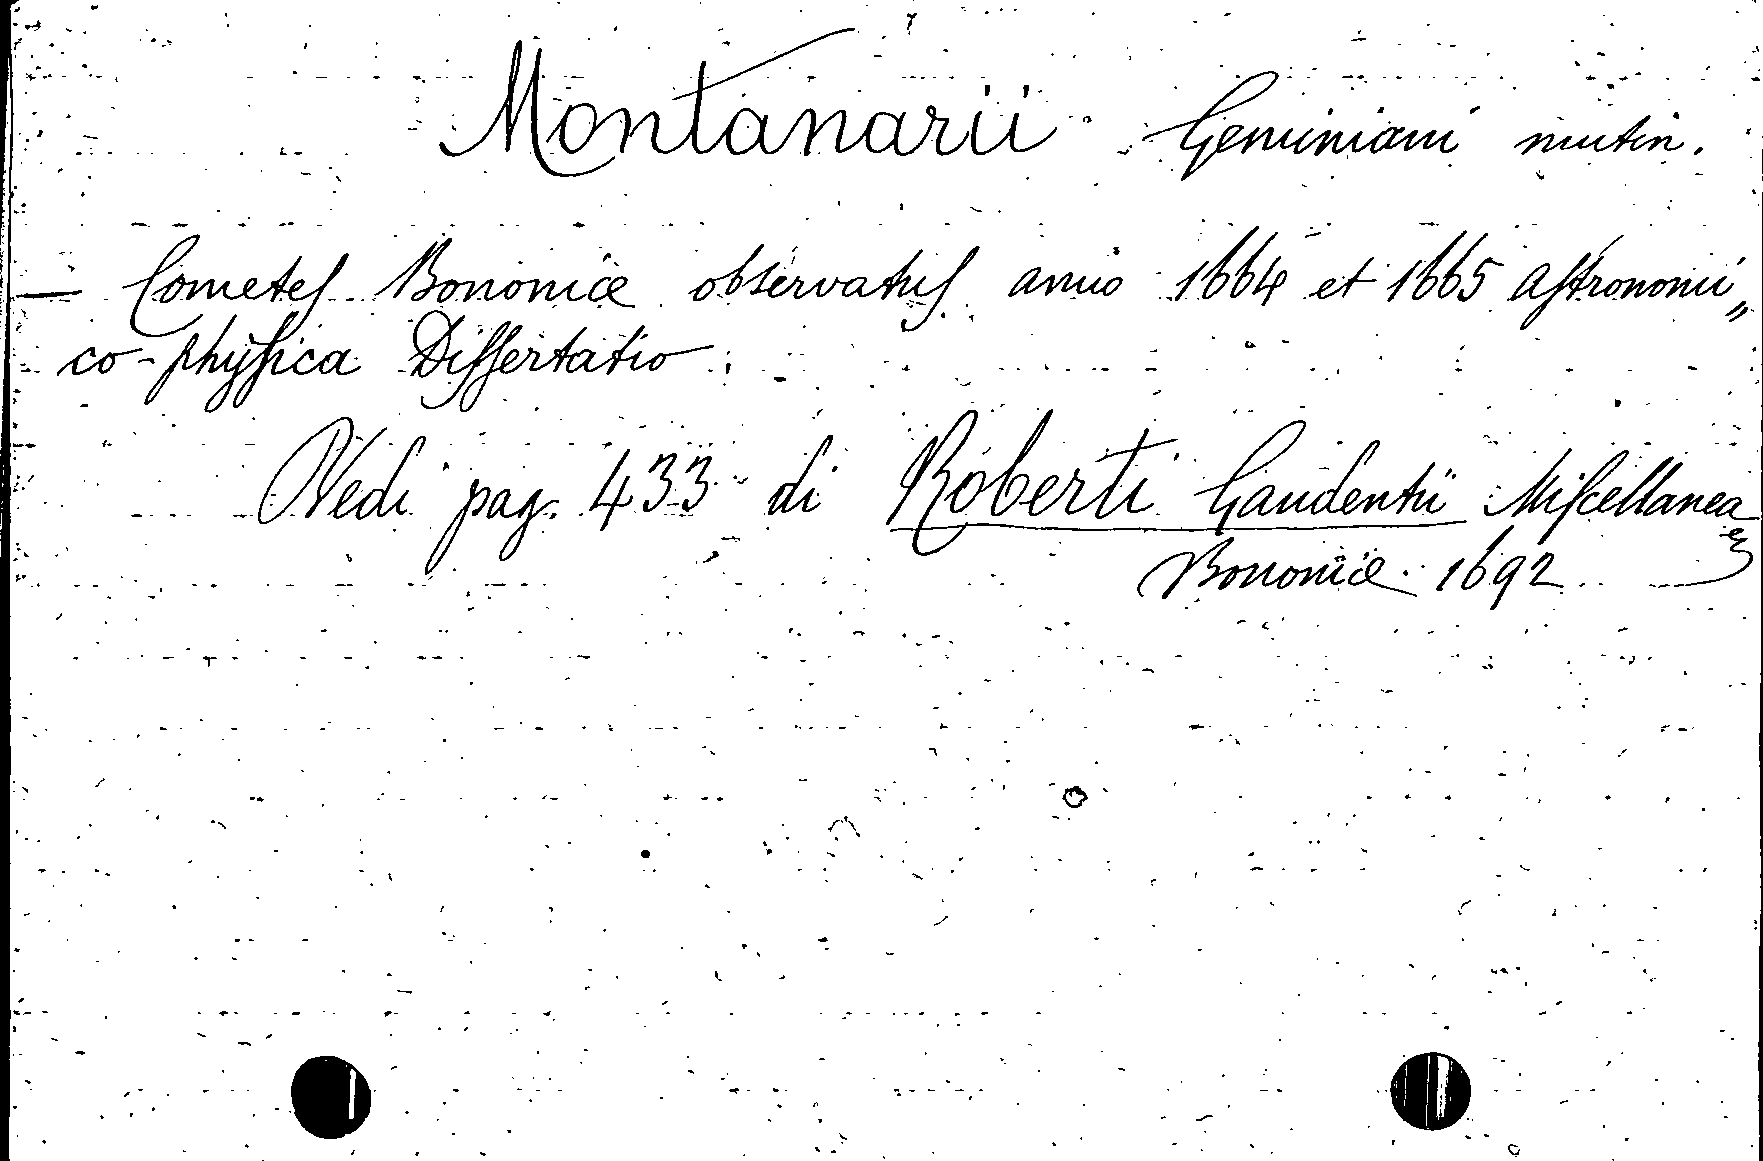 Montanarii Geminiani mutin.
— Cometes Bononiæ observatus anno 1664 et 1665 astronomi„
co-physica Dissertatio
Vedi pag. 433 di Roberti Gaudentii Miscellanea
Bononiæ 1692